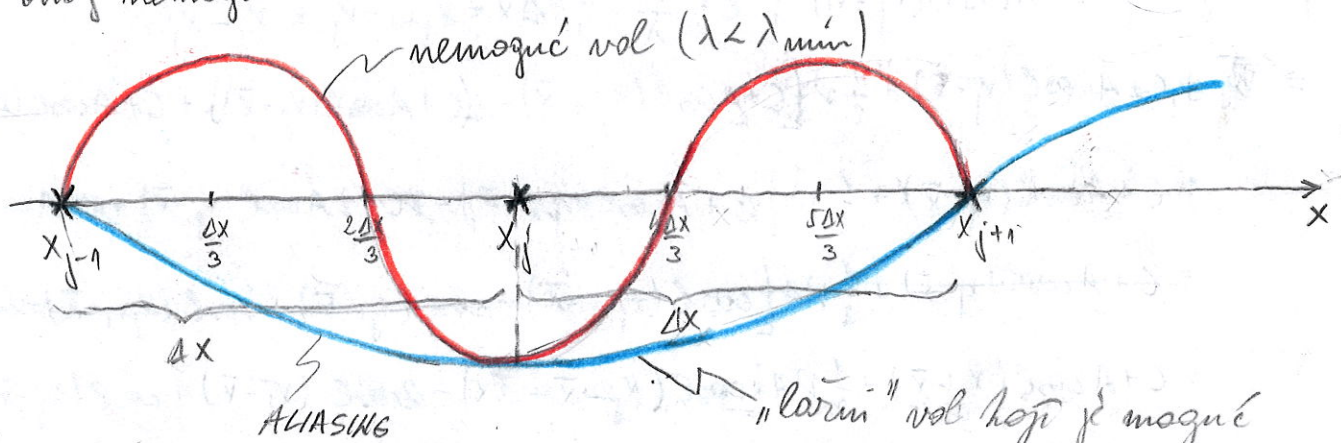 nemoguć val (λ < λ min)
Δx/3 2Δx/3 4Δx/3 5Δx/3 x
x j-1 x j x j+1
Δx Δx
ALIASING
„lažni" val koji je moguć